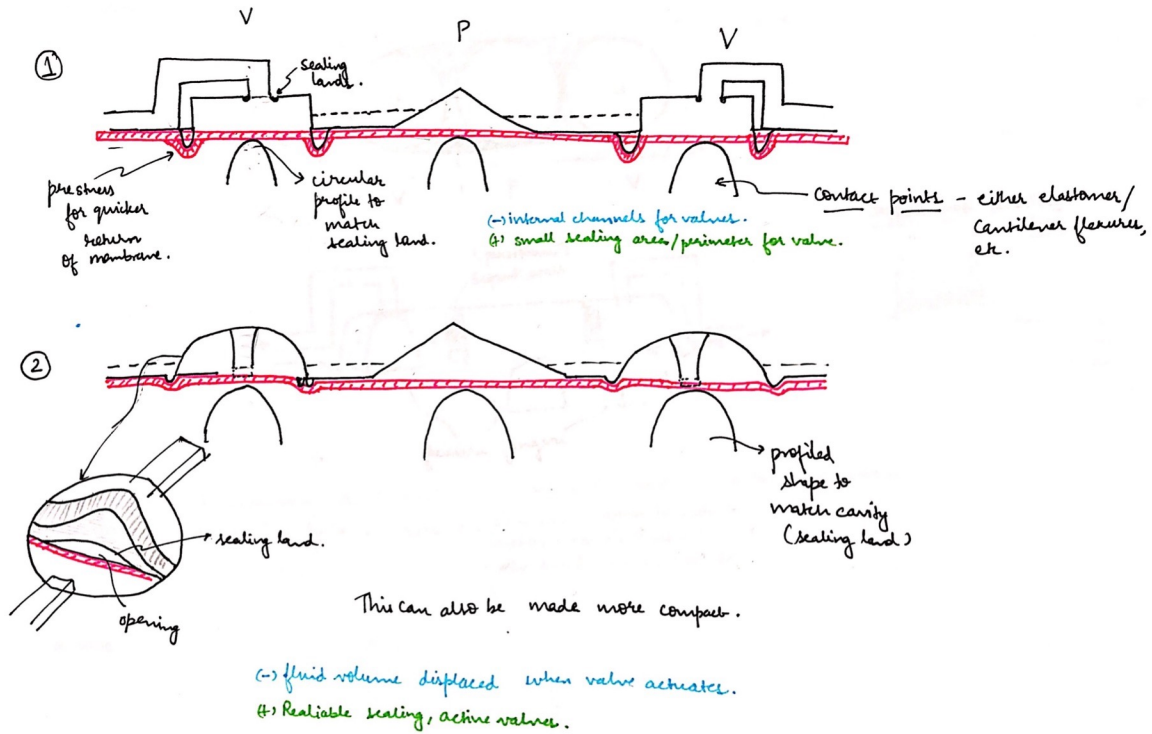 V
P
V
1
sealing
lands.
prestress
for quicker
return
of membrane.
circular
profile to
match
sealing land.
(-) internal channels for valves.
(+) small sealing area/perimeter for valve.
contact points - either elastomer/
cantilever flexures,
etc.
2
profiled
shape to
match cavity
(sealing land)
sealing land.
opening
This can also be made more compact.
(-) fluid volume displaced when valve actuates.
(+) Realiable sealing, active valves.